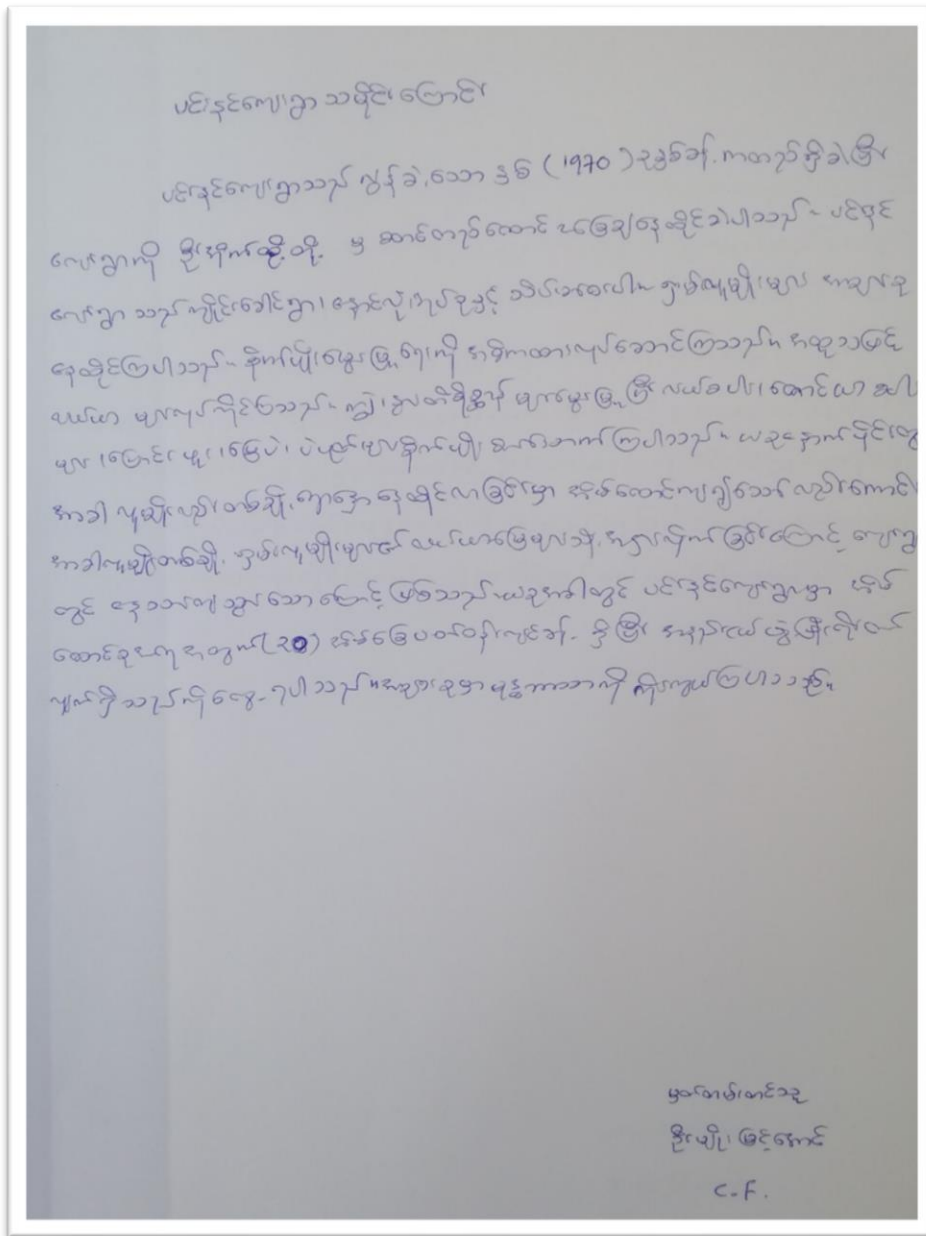 ပင်းနင်ကျေးရွာ သမိုင်းကြောင်း
ပင်းနင်ကျေးရွာသည် လွန်ခဲ့သော နှစ် (1970) ခုနှစ်ခန့်ကတည်ရှိခဲ့ပြီး
ကျေးရွာကို ဦးအိုက်ထွန်းတို့ မှ ဆောင်တည်ထောင် အခြေချနေထိုင်ခဲ့ပါသည်။ ပင်းနင်
ကျေးရွာ သည်ကျိုင်းခေါင်ရွာ၊ နောင်လုံအုပ်စုနှင့် သိပ်မဝေးပါ။ ရှမ်းလူမျိုးများ အများစု
နေထိုင်ကြပါသည်။ စိုက်ပျိုးမွေးမြူရေးကို အဓိကထားလုပ်ဆောင်ကြသည်။ အထူးသဖြင့်
လယ်ယာ များလုပ်ကိုင်ကြသည်။ ကျွဲ၊ နွားတိရိစ္ဆာန် များမွေးမြူပြီး လယ်စပါး၊ တောင်ယာ စပါး
များ၊ ပြောင်းဖူး၊ မြေပဲ၊ ပဲပုတ်များစိုက်ပျိုး စားသောက်ကြပါသည်။ ယခုနောက်ပိုင်းတွင်
အာခါ လူမျိုးလည်းတစ်ချို့ရောနှော နေထိုင်လာခြင်းမှာ အိမ်ထောင်ကျ၍သော်လည်းကောင်း
အာခါလူမျိုးတစ်ချို့ ရှမ်းလူမျိုးများ၏ လယ်ယာမြေများသို့ အငှားလိုက်ခြင်းကြောင့် ကျေးရွာ
တွင် နေသားကျသွားသောကြောင့် ဖြစ်သည်။ ယခုအခါတွင် ပင်းနင်ကျေးရွာမှာ အိမ်
ထောင်စုအရေအတွက် (20) အိမ်ခြေပတ်ဝန်းကျင်ခန့် ရှိပြီး အနည်းငယ်ဖွံ့ဖြိုးတိုးတက်
လျက်ရှိသည်ကိုတွေ့ရပါသည်။ အများစုမှာ ဗုဒ္ဓဘာသာကို ကိုးကွယ်ကြပါသည်။
မှတ်တမ်းတင်သူ
ဦးမျိုးမြင့်အောင်
C.F.